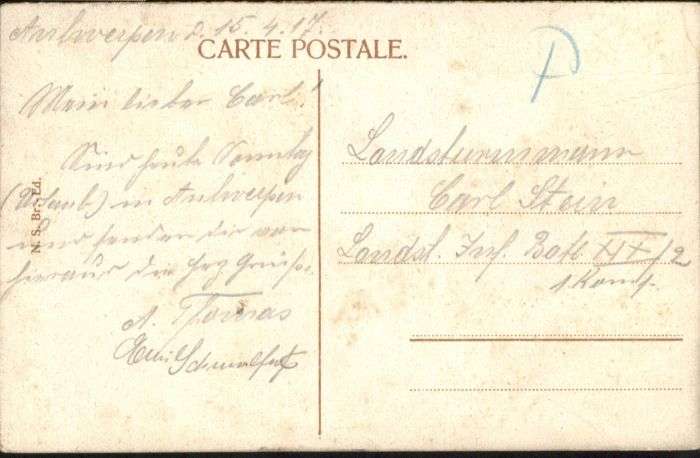 Antwerpen d. 15. 4. 17.
CARTE POSTALE.
P
Mein lieber Carl!
Sind heute Sonntag
(Urlaub) in Antwerpen
und senden dir von
hieraus die hzg Grüße.
A. Thomas
Emil
N. S. Br., Ed.
Landsturmmann
Carl Stein
Landst. Inf. Batl. XIX/2
1 Komp.